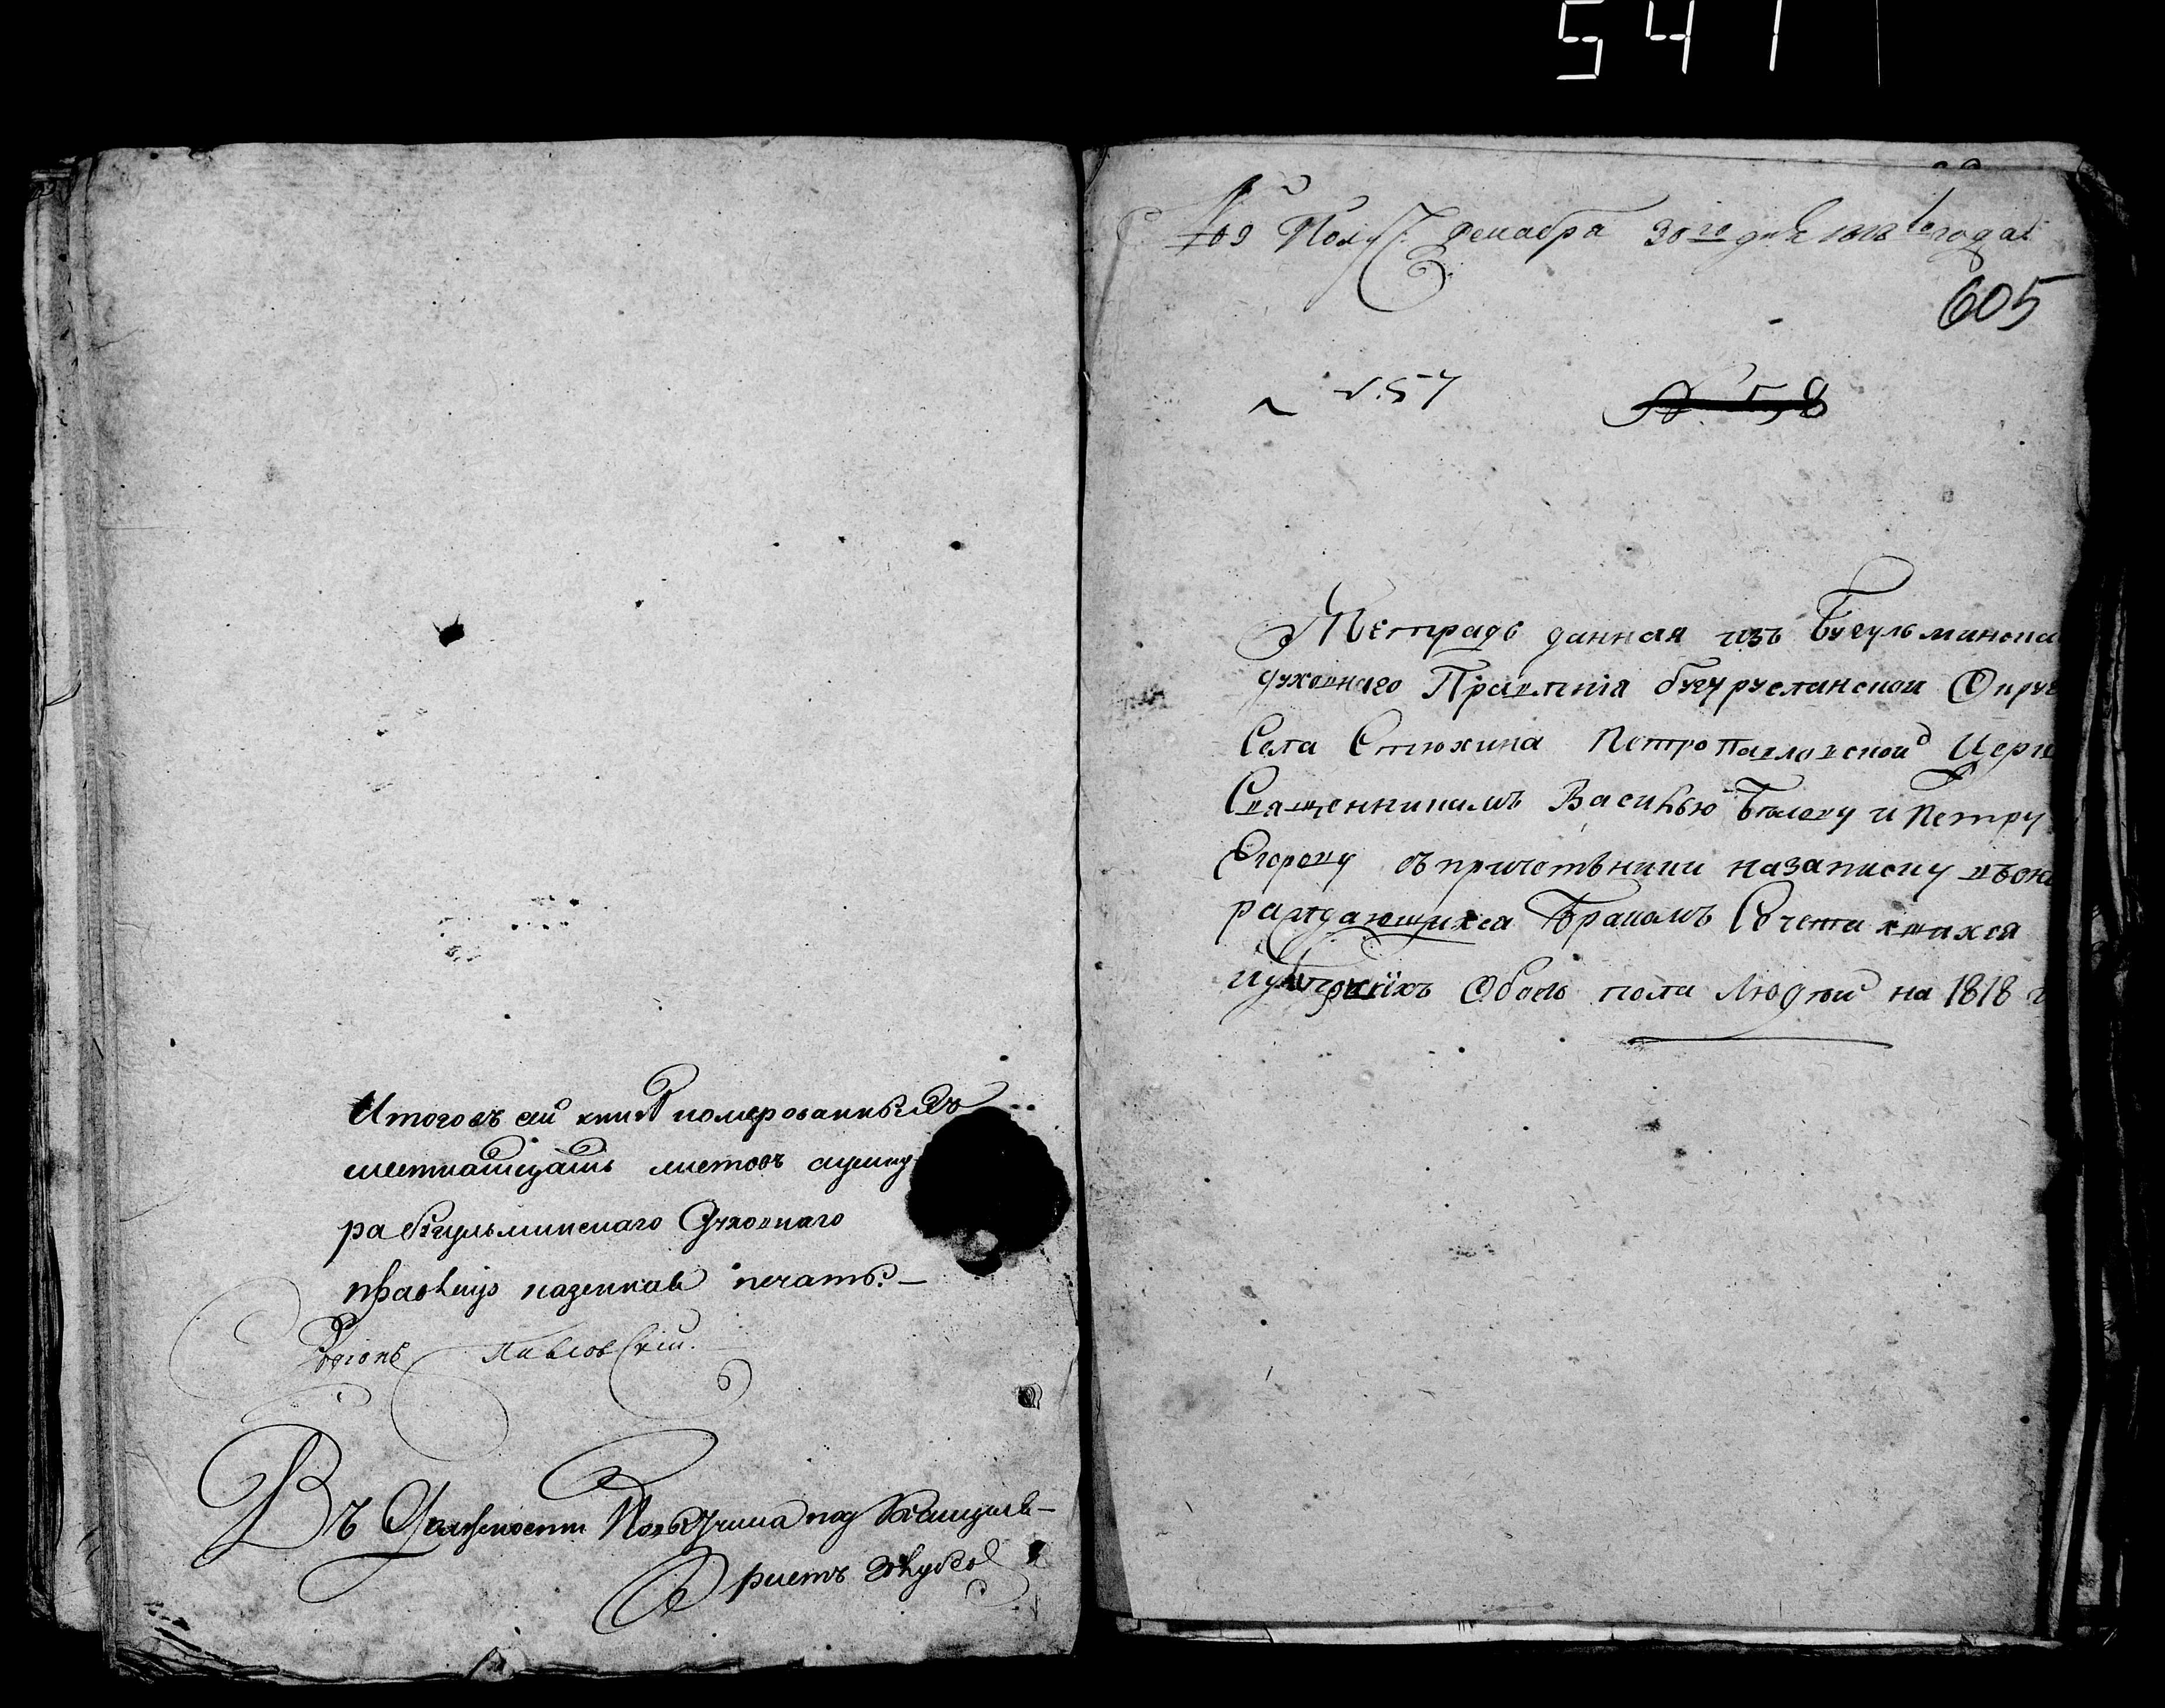 541
Итого въ сей книгѣ номерованныхъ
шестнатцать листовъ
ра Бугульминскаго Духовнаго
правленія казенная печать. —
Родіонъ Павловскій.
Въ Должности Повытчика под Канцеля-
ристъ
№ 9 Полу: Декабря 30го дня 1818го года
605
№ 57
№ 58
Тетрадь данная изъ Бугульминска
духовнаго Правленія бугурусланской Округ
Села Стюхина Петропавловской Церк
Священникамъ Василью Бѣлову и Петру
Егорову съ причетники на записку въ оно
раждающихся Бракомъ Сочетавшихся
и умершихъ Обоего пола Людей на 1818 г